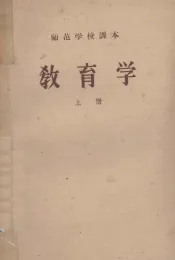 师范学校課本
教育学
上册